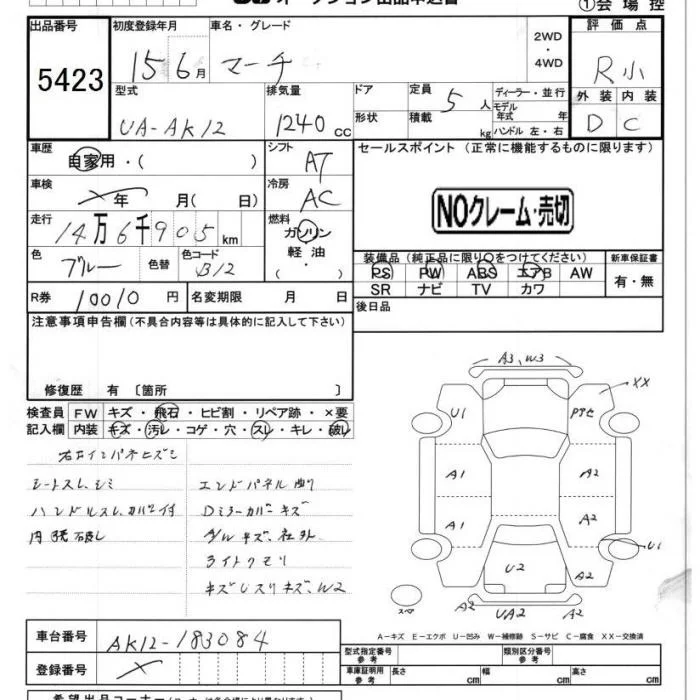 オークション出品申込書
①会場控
出品番号
5423
初度登録年月
15 6月
車名・グレード
マーチ
2WD
・
4WD
評価点
R小
型式
UA-AK12
排気量
1240 cc
ドア
形状
定員 5 人
積載 kg
ディーラー・並行
モデル年式 年
ハンドル 左・右
外装 内装
D C
車歴
自家用・( )
シフト
AT
セールスポイント (正常に機能するものに限ります)
NOクレーム・売切
車検
年 月( 日)
冷房
AC
走行
14万6千905 km
燃料
ガソリン
軽油
・
色
ブルー
色替
色コード
B12
装備品 (純正品に限り○をつけてください)
PS PW ABS エアB AW
SR ナビ TV カワ
新車保証書
有・無
R券 10010 円
名変期限 月 日
後日品
注意事項申告欄 (不具合内容等は具体的に記入して下さい)
修復歴 有 〔箇所 〕
検査員 FW キズ・飛石・ヒビ割・リペア跡・×要
記入欄 内装 キズ・汚レ・コゲ・穴・スレ・キレ・破レ
シートスレ、シミ
エンドパネル曲り
ハンドルスレ、カバー付
Dミラーカバーキズ
A/Wキズ、社外
ライトクモリ
A3, W3
XX
U1
A1
A2
A1
A2
U1
U2
A2
スペア
A2
UA2
A2
A-キズ E-エクボ U-凹み W-補修跡 S-サビ C-腐食 XX-交換済
車台番号 AK12-183084
登録番号
型式指定番号 参考
類別区分番号 参考
車庫証明用 参考 長さ cm 幅 cm 高さ cm